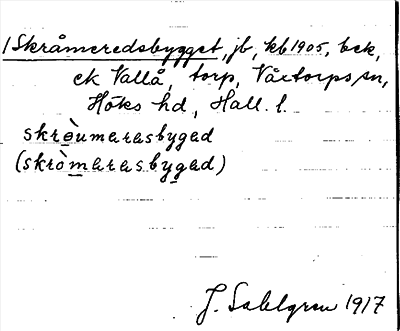 /Skråmeredsbygget, jb, kb 1905, bek,
ek Vallå, torp, Våxtorps sn,
Höks hd, Hall. l.
skròumarasbygəd
(skròmarasbygəd)
J. Sahlgren 1917